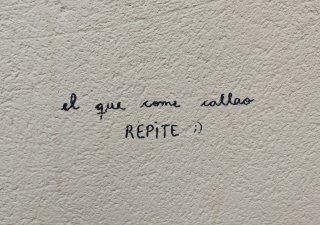 el que come callao
REPiTE ;)